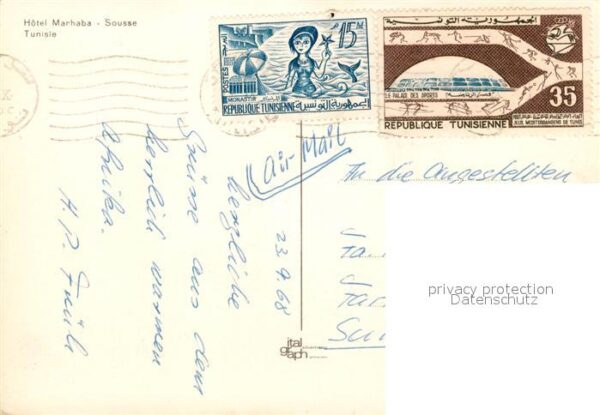 Hôtel Marhaba - Sousse
Tunisie
15M
POSTES
MONASTIR
REPUBLIQUE TUNISIENNE
الجمهورية التونسية
الجمهورية التونسية
LE PALAIS DES SPORTS
35
REPUBLIQUE TUNISIENNE
JEUX MEDITERRANEENS DE TUNIS
Air Mail
An die Angestellten
23.9.68
herzliche
Grüsse aus dem
herrlich warmen
Afrika.
privacy protection
Datenschutz
ital
graph